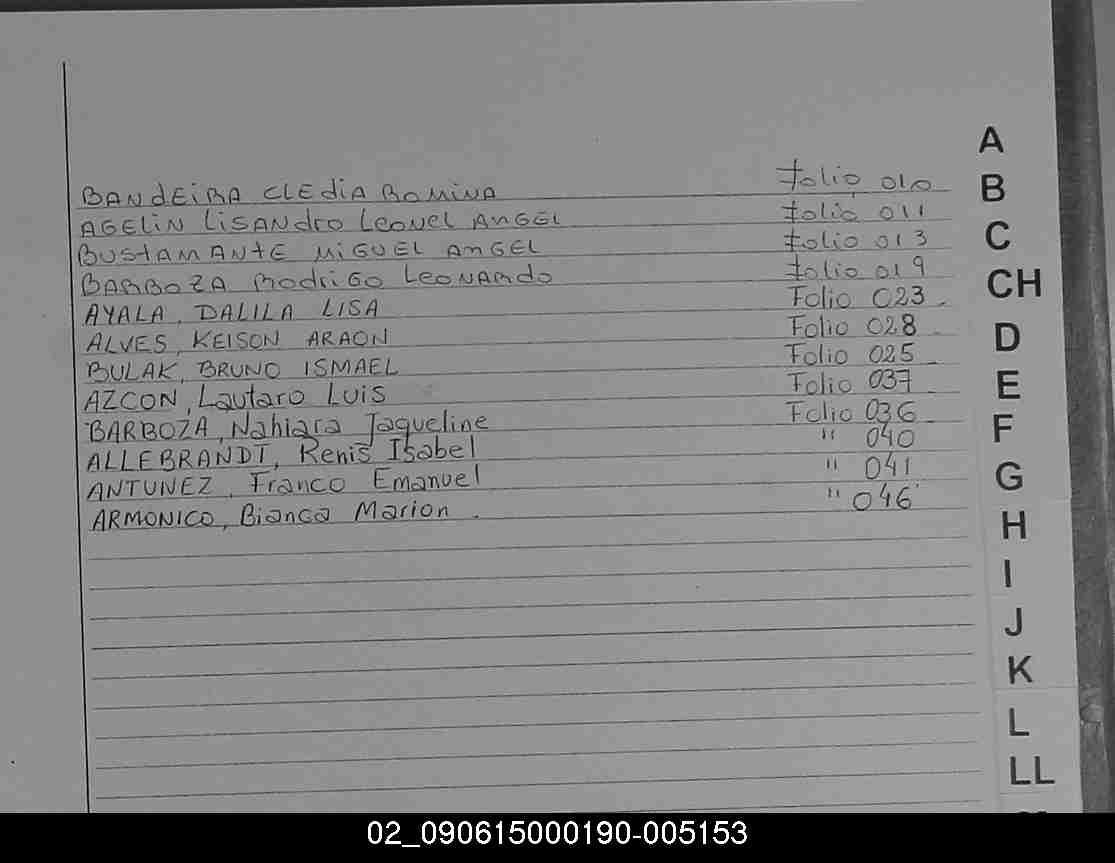 A
BANdEiRA CLEdiA ROMiNA folio 010
B
AGELiN LiSANdro Leonel ANGEL folio 011
BUStAMANtE MiGUEL ANGEL folio 013
C
BARBOZA RodriGo LeoNARdo folio 019
CH
AYALA, DALILA LISA Folio 023.
ALVES, KEISON ARAON Folio 028
D
BULAK, BRUNO ISMAEL Folio 025
AZCON, Lautaro Luis Folio 037
E
BARBOZA, Nahiara Jaqueline Folio 036
F
ALLEBRANDT, Renis Isabel " 040
ANTUNEZ, Franco Emanuel " 041
G
ARMONICO, Bianca Marion. " 046
H
I
J
K
L
LL
02_090615000190-005153